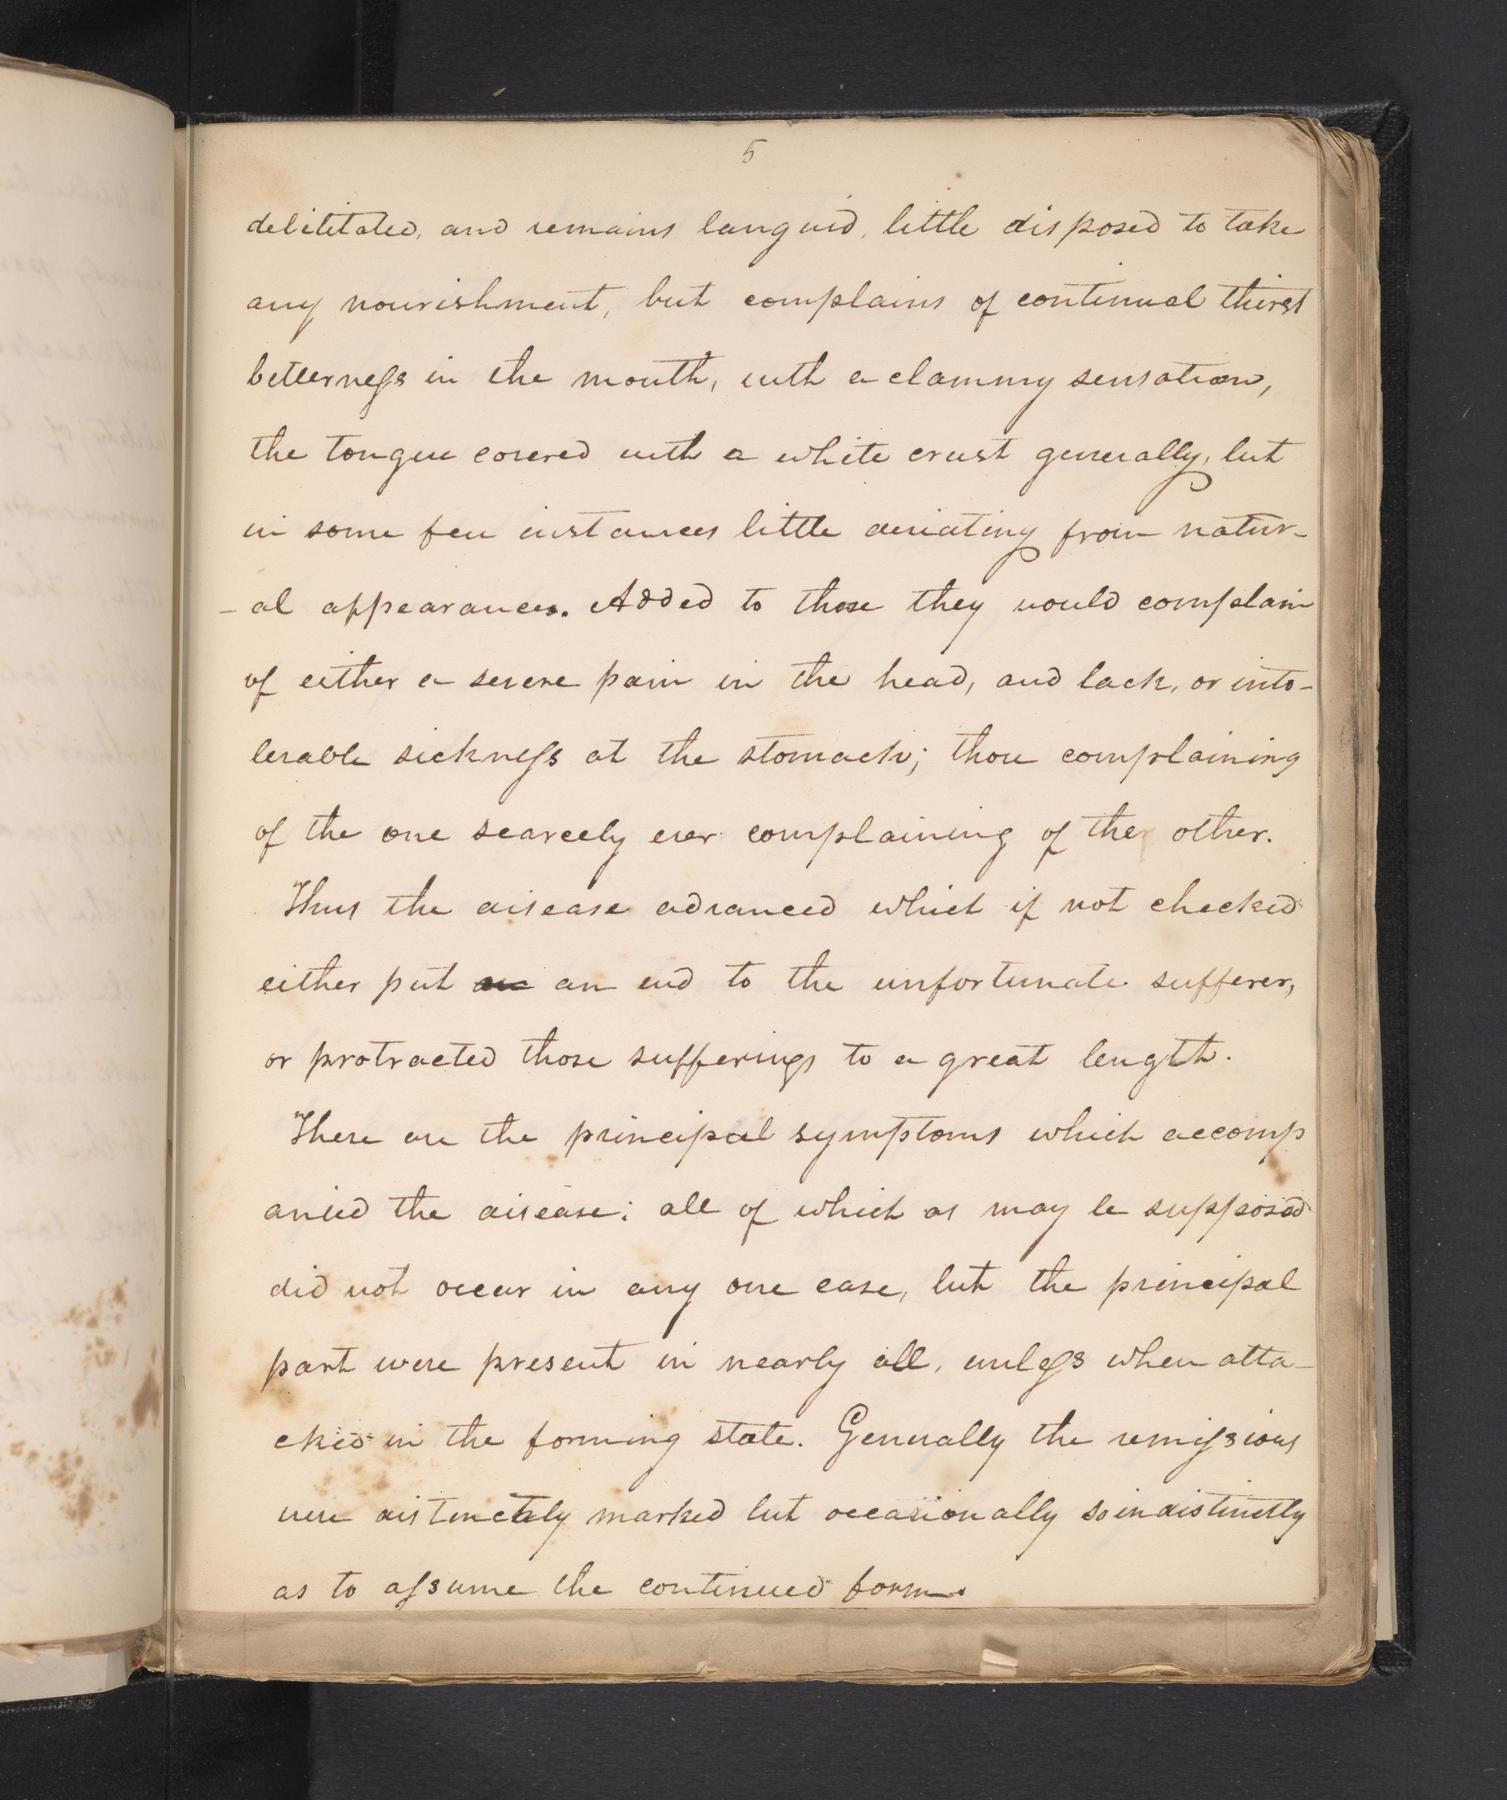 5
debilitated, and remains languid, little disposed to take
any nourishment, but complains of continual thirst
bitterness in the mouth, with a clammy sensation,
the tongue covered with a white crust generally, but
in some few instances little deviating from natur-
-al appearances. Added to those they would complain
of either a severe pain in the head, and back, or into-
lerable sickness at the stomach; those complaining
of the one scarcely ever complaining of the other.
Thus the disease advanced which if not checked
either put an an end to the unfortunate sufferer,
or protracted those sufferings to a great length.
These are the principal symptoms which accomp
anied the disease; all of which as may be supposed
did not occur in any one case, but the principal
part were present in nearly all, unless when atta-
cked in the forming state. Generally the remissions
were distinctly marked but occasionally so indistinctly
as to assume the continued form.